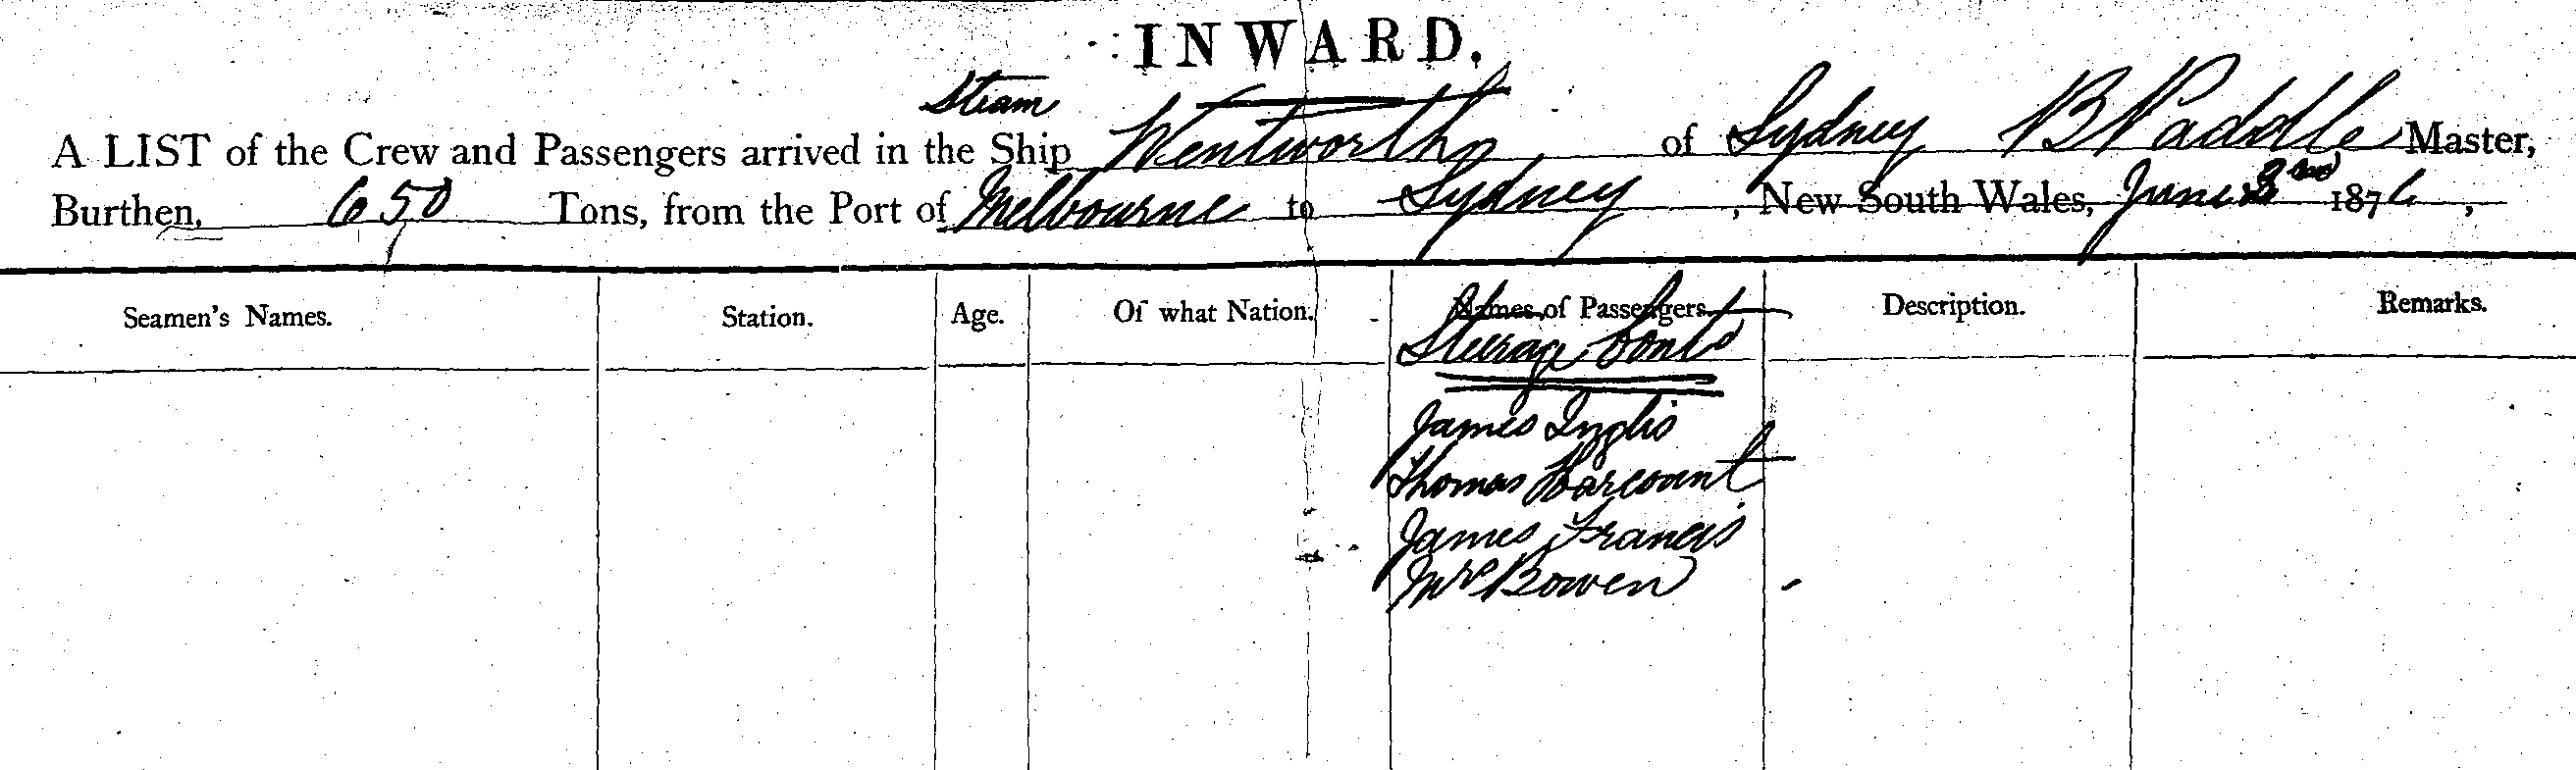 INWARD.
Steam
A LIST of the Crew and Passengers arrived in the Ship Wentworth of Sydney B Paddle Master,
Burthen, 650 Tons, from the Port of Melbourne to Sydney, New South Wales, June 1876,
Seamen's Names. Station. Age. Of what Nation. Names of Passengers. Description. Remarks.
Steerage Contd
James Inglis
Thomas Harcourt
James Francis
Mrs Bowen